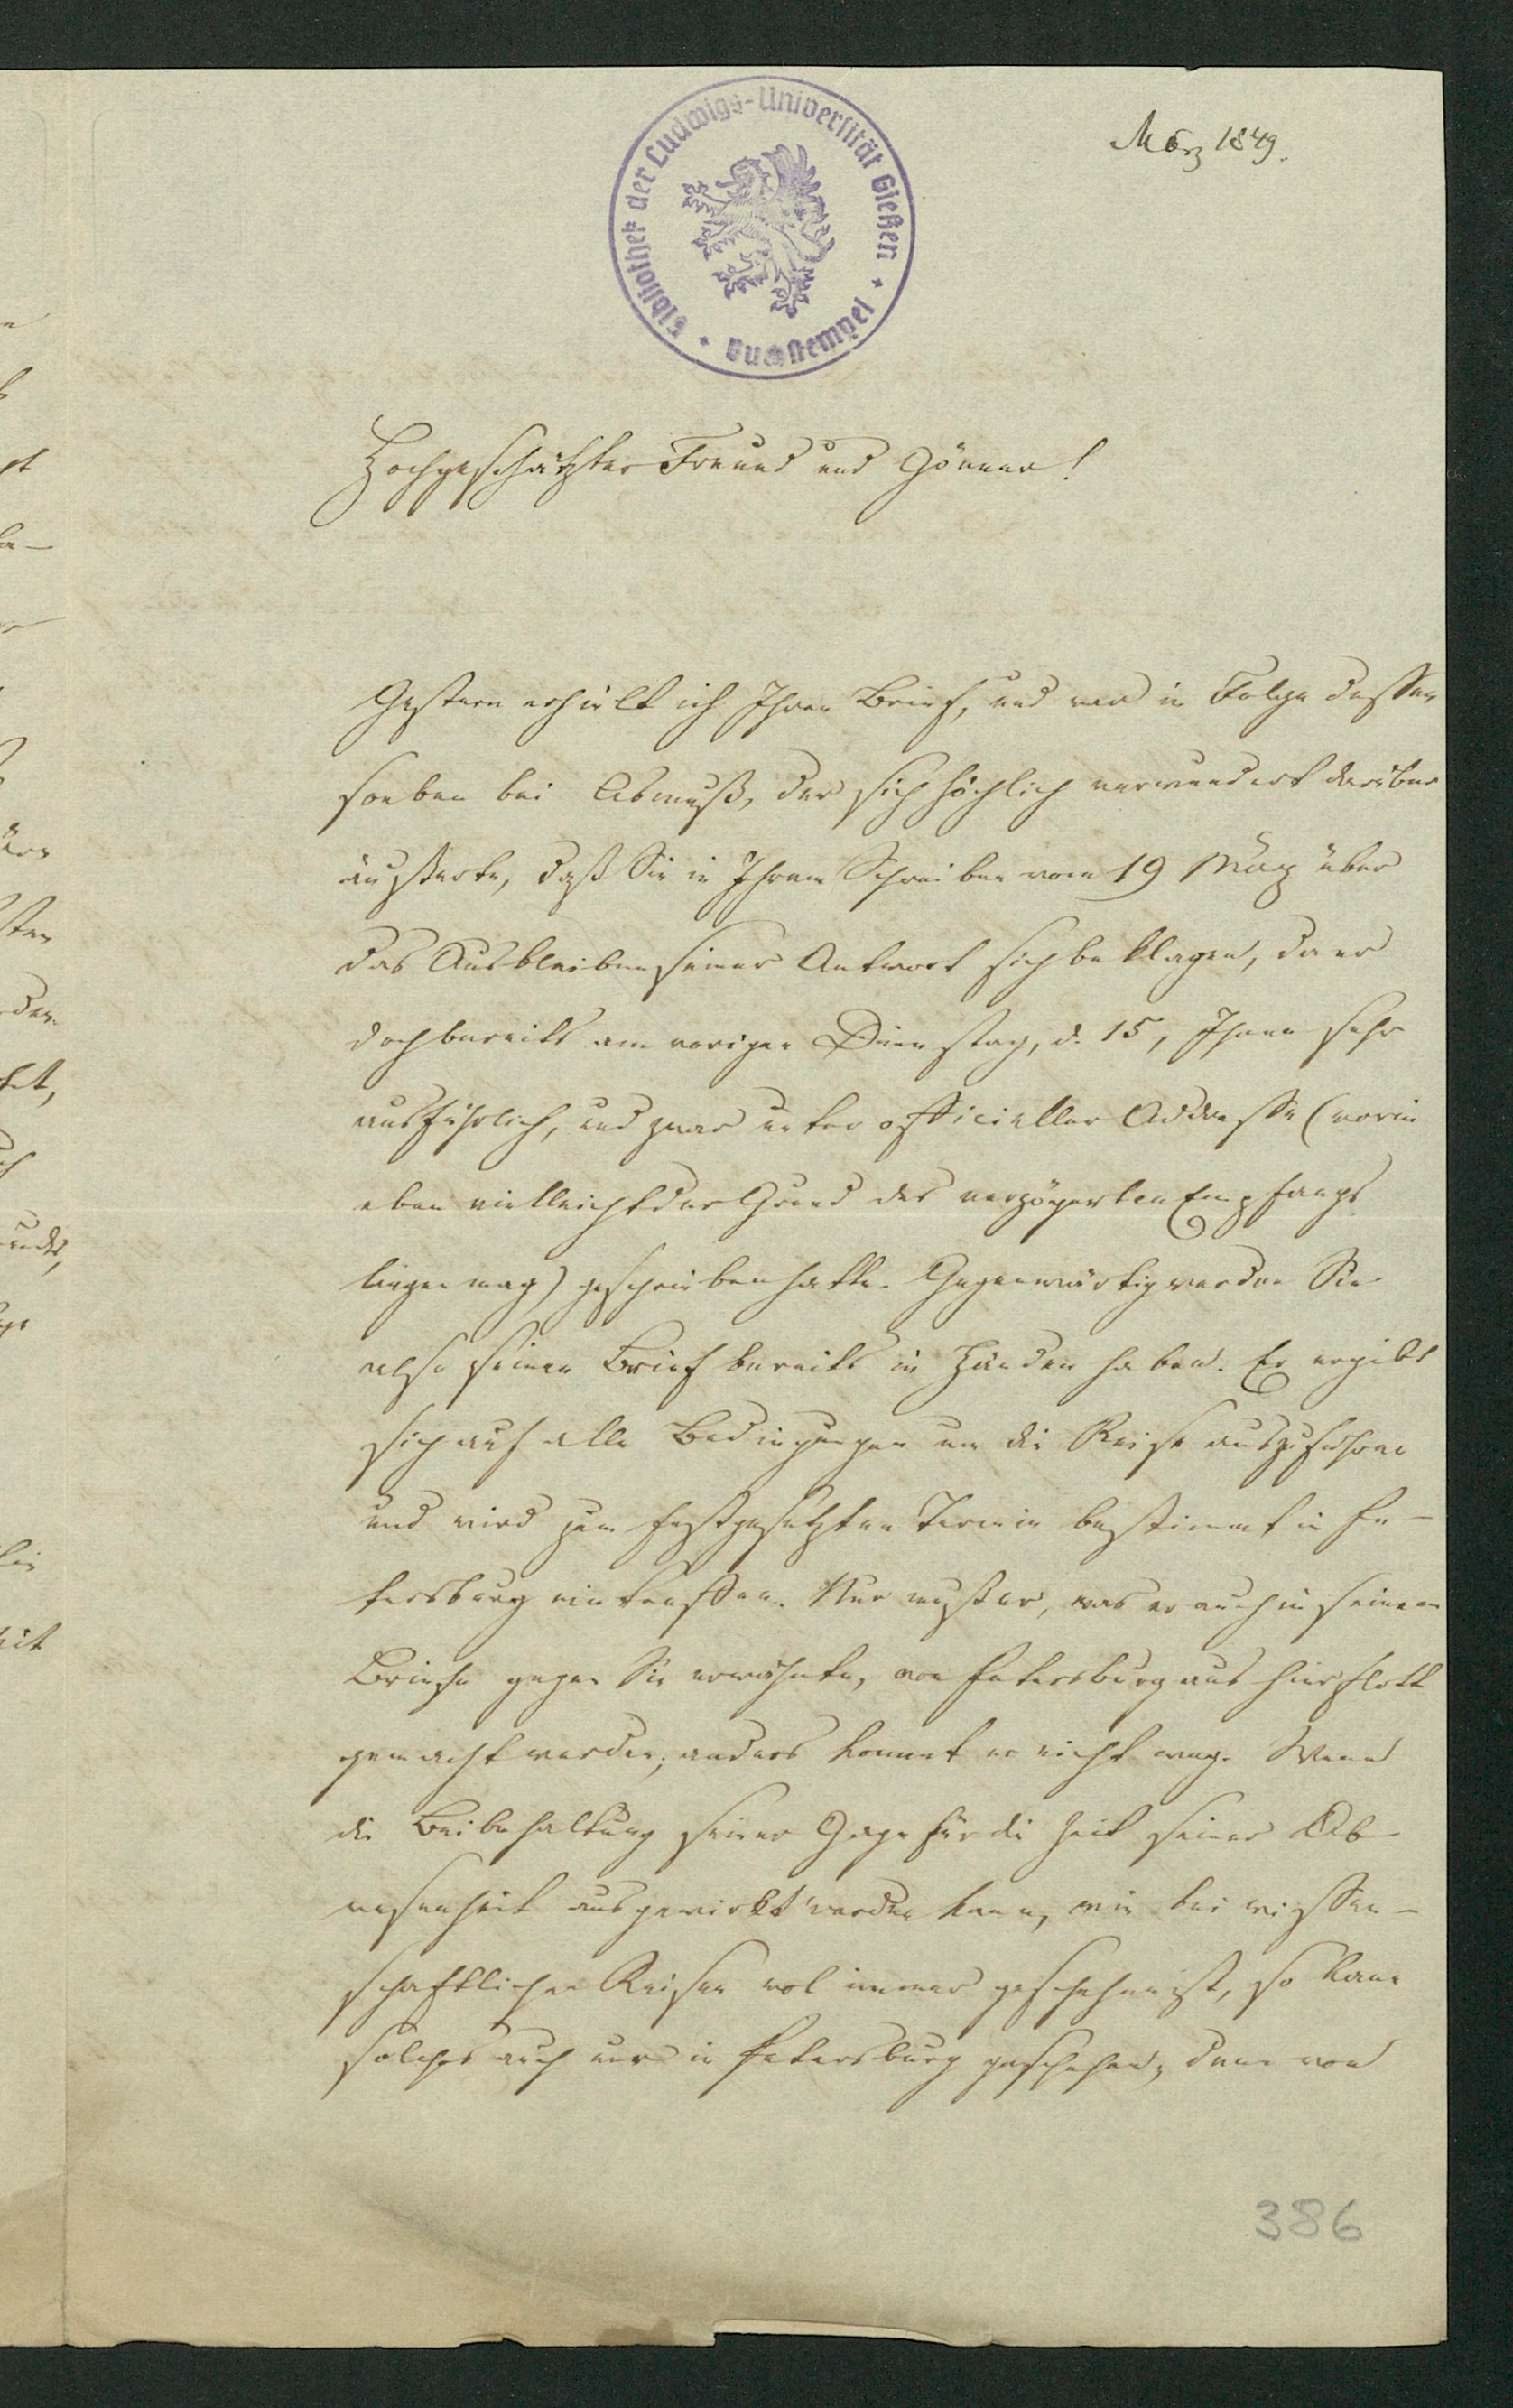 März 1849.
Bibliothek der Ludwigs-Universität Gießen
Hochgeschätzter Freund und Gönner!
Gestern erhielt ich Ihren Brief, und war in Folge dessen
soeben bei Asmuß, der sich höchlich verwundert darüber
äußerte, daß Sie in Ihrem Schreiben vom 19 März über
das Ausbleiben seiner Antwort sich beklagen, da er
doch bereits am vorigen Dienstag, d. 15, Ihnen sehr
ausführlich, und zwar unter officieller Addresse (worin
eben vielleicht der Grund des verzögerten Empfangs
liegen mag) geschrieben hatte. Gegenwärtig werden Sie
also seinen Brief bereits in Händen haben. Er ergibt
sich auf alle Bedingungen um die Reise auszuführen
und wird zum festgesetzten Termin bestimmt in Pe-
tersburg eintreffen. Nur muß er, was er auch in seinem
Briefe gegen Sie erwähnte, von Petersburg aus hier flott
gemacht werden; anders kommt er nicht weg. Wenn
die Beibehaltung seiner Gage für die Zeit seiner Ab-
wesenheit ausgewirkt werden kann, wie bei wissen-
schaftlichen Reisen wol immer geschehen ist, so kann
solches auch nur in Petersburg geschehen, denn von
386